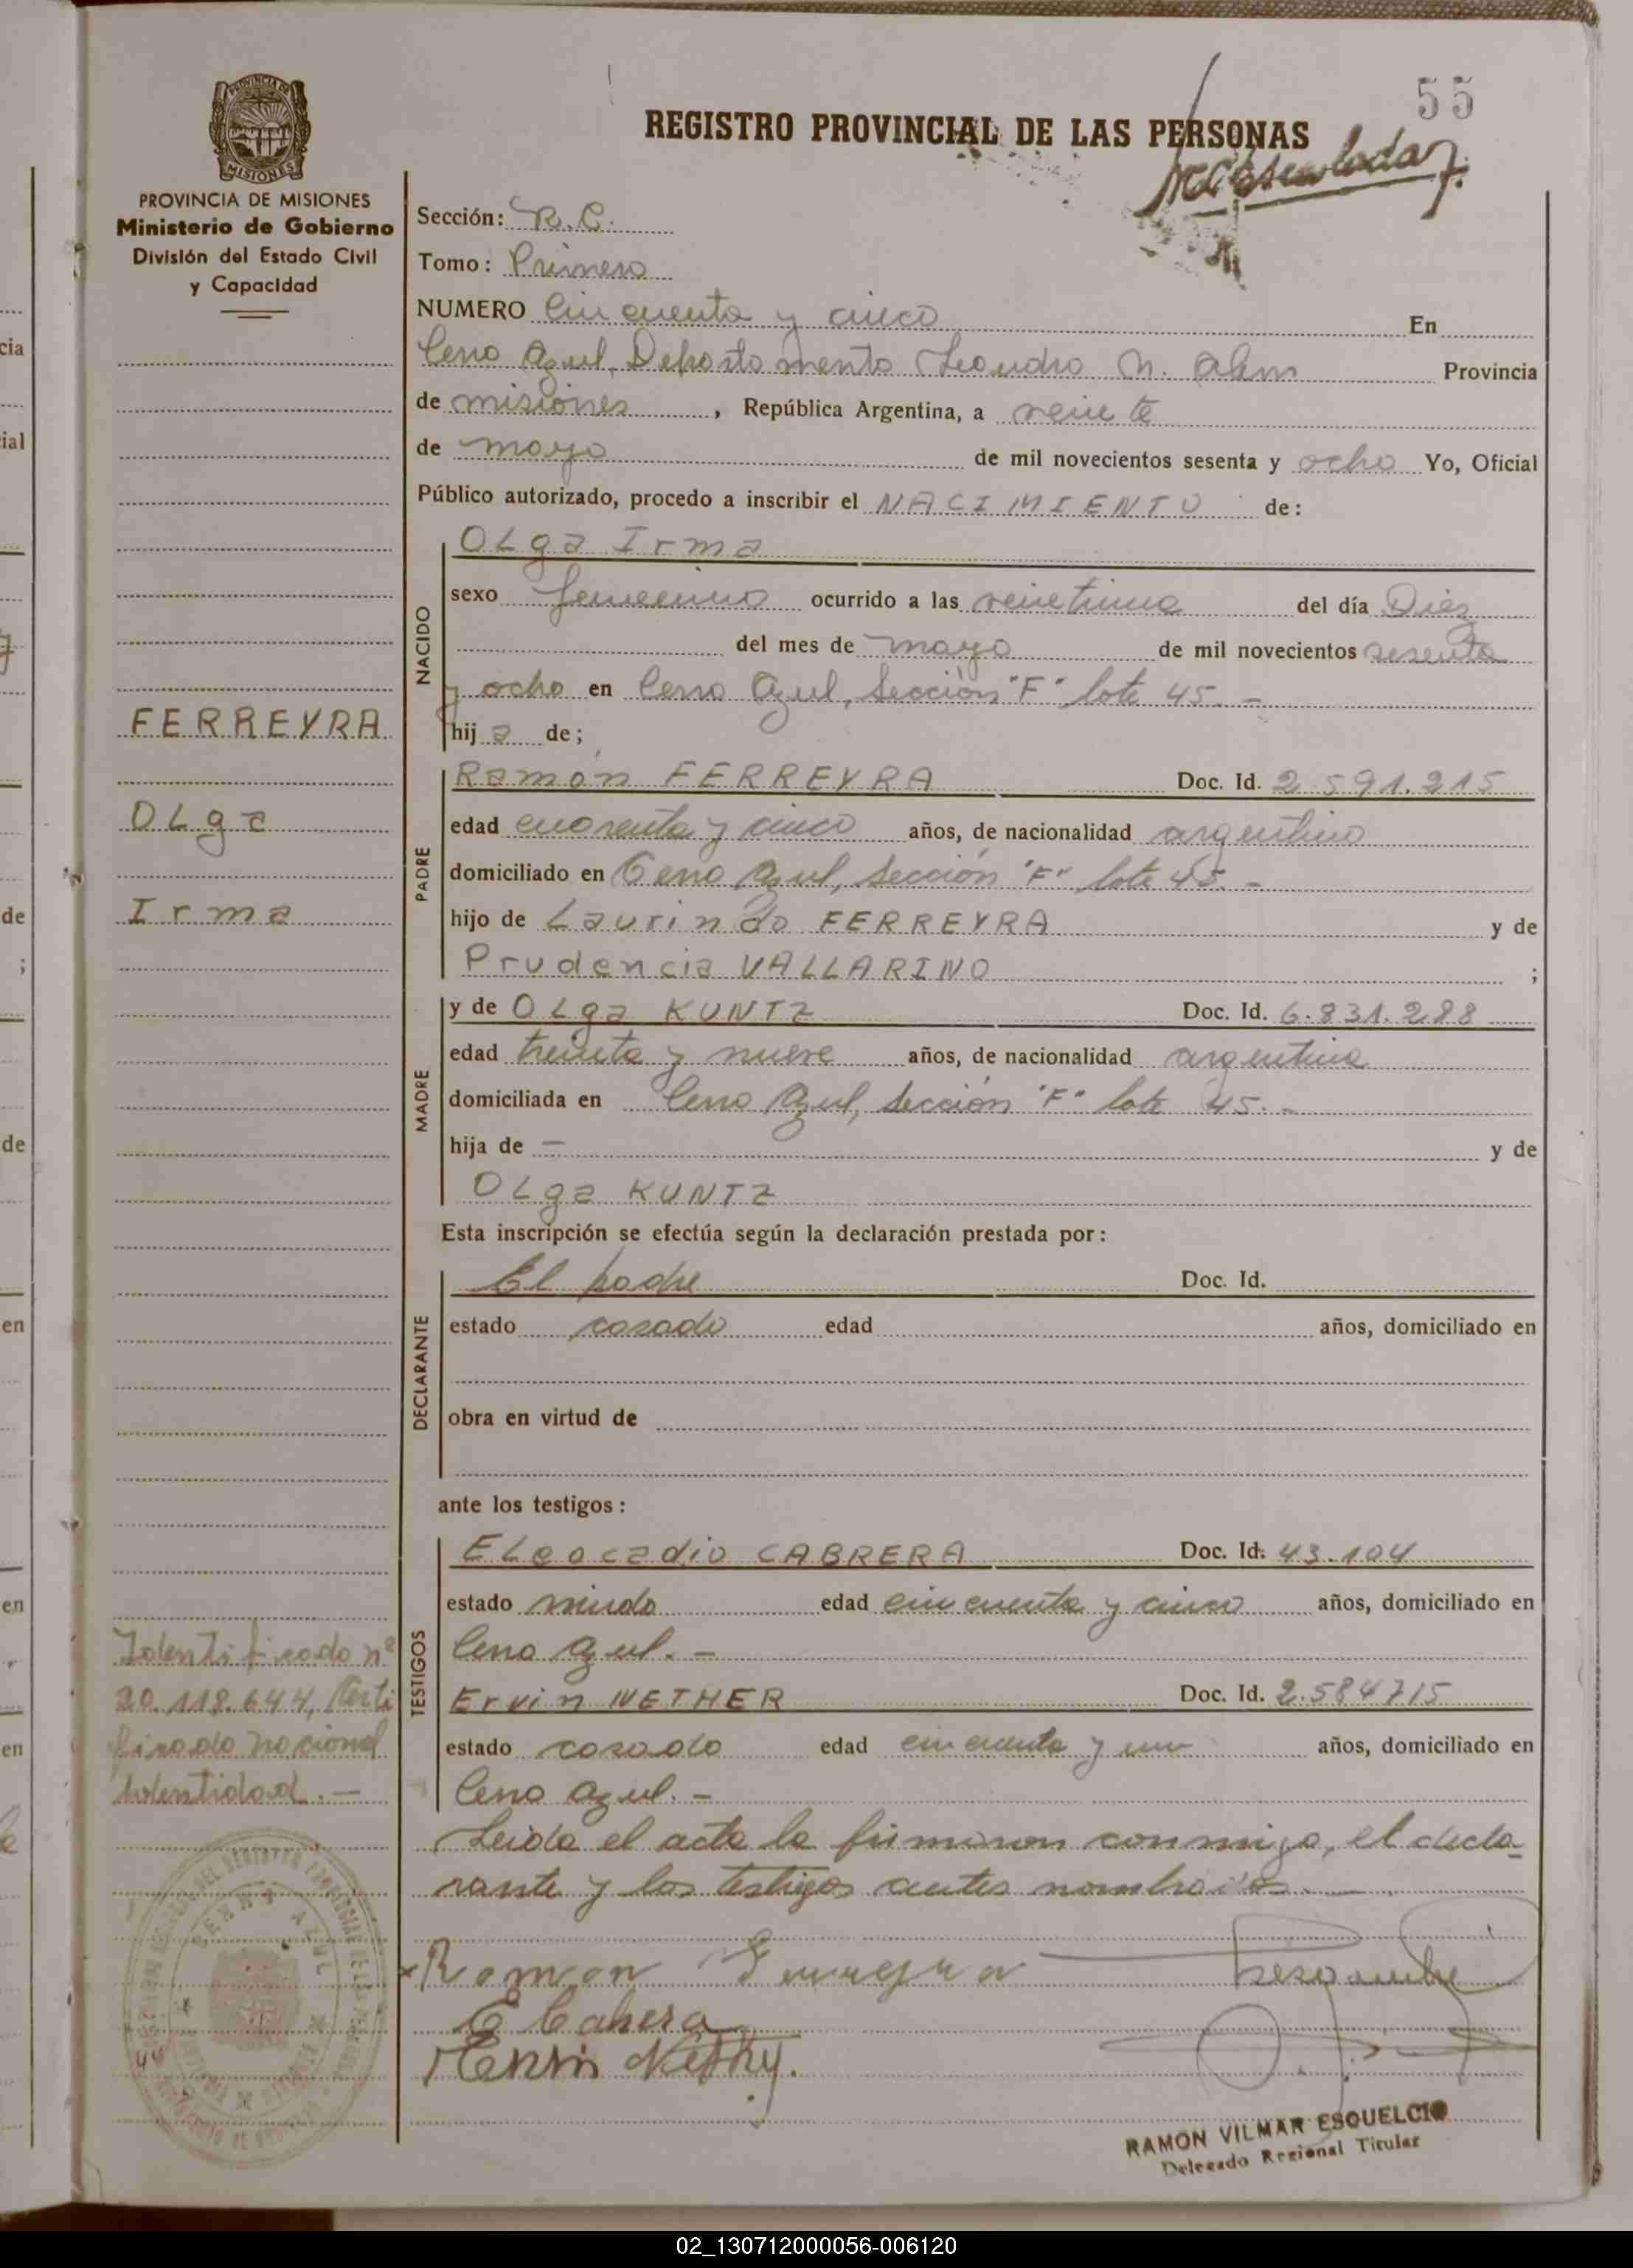 55
REGISTRO PROVINCIAL DE LAS PERSONAS
PROVINCIA DE MISIONES
Ministerio de Gobierno
División del Estado Civil
y Capacidad
Sección: R.C.
Tomo: Primero
NUMERO Cincuenta y cinco En
Cerro Azul, Departamento Leandro N. Alem Provincia
de misiones, República Argentina, a veinte
de mayo de mil novecientos sesenta y ocho Yo, Oficial
Público autorizado, procedo a inscribir el NACIMIENTO de:
NACIDO
OLga Irma
sexo femenino ocurrido a las veintiuna del día Diez
del mes de mayo de mil novecientos sesenta
y ocho en Cerro Azul, Sección "F" lote 45. -
hij a de;
FERREYRA
OLga
Irma
PADRE
Ramón FERREYRA Doc. Id. 2.591.215
edad cuarenta y cinco años, de nacionalidad argentino
domiciliado en Cerro Azul, Sección "F" lote 45. -
hijo de Laurindo FERREYRA y de
Prudencia VALLARINO ;
MADRE
y de OLga KUNTZ Doc. Id. 6.831.288
edad treinta y nueve años, de nacionalidad argentina
domiciliada en Cerro Azul, Sección "F" lote 45. -
hija de — y de
OLga KUNTZ
Esta inscripción se efectúa según la declaración prestada por:
DECLARANTE
El padre Doc. Id.
estado casado edad años, domiciliado en
obra en virtud de
ante los testigos:
TESTIGOS
ELeocadio CABRERA Doc. Id. 43.104
estado viudo edad cincuenta y cinco años, domiciliado en
Cerro Azul. -
Ervin NETHER Doc. Id. 2.584715
estado casado edad cincuenta y un años, domiciliado en
Cerro Azul. -
Identificado nº
20.118.644, Certi
ficado nacional
identidad. —
Leida el acta la firmaron conmigo, el decla-
rante y los testigos antes nombrados.
Ramon Ferreyra
E Cabrera
CERRO AZUL
RAMON VILMAR ESQUELCIO
Delegado Regional Titular
02_130712000056-006120